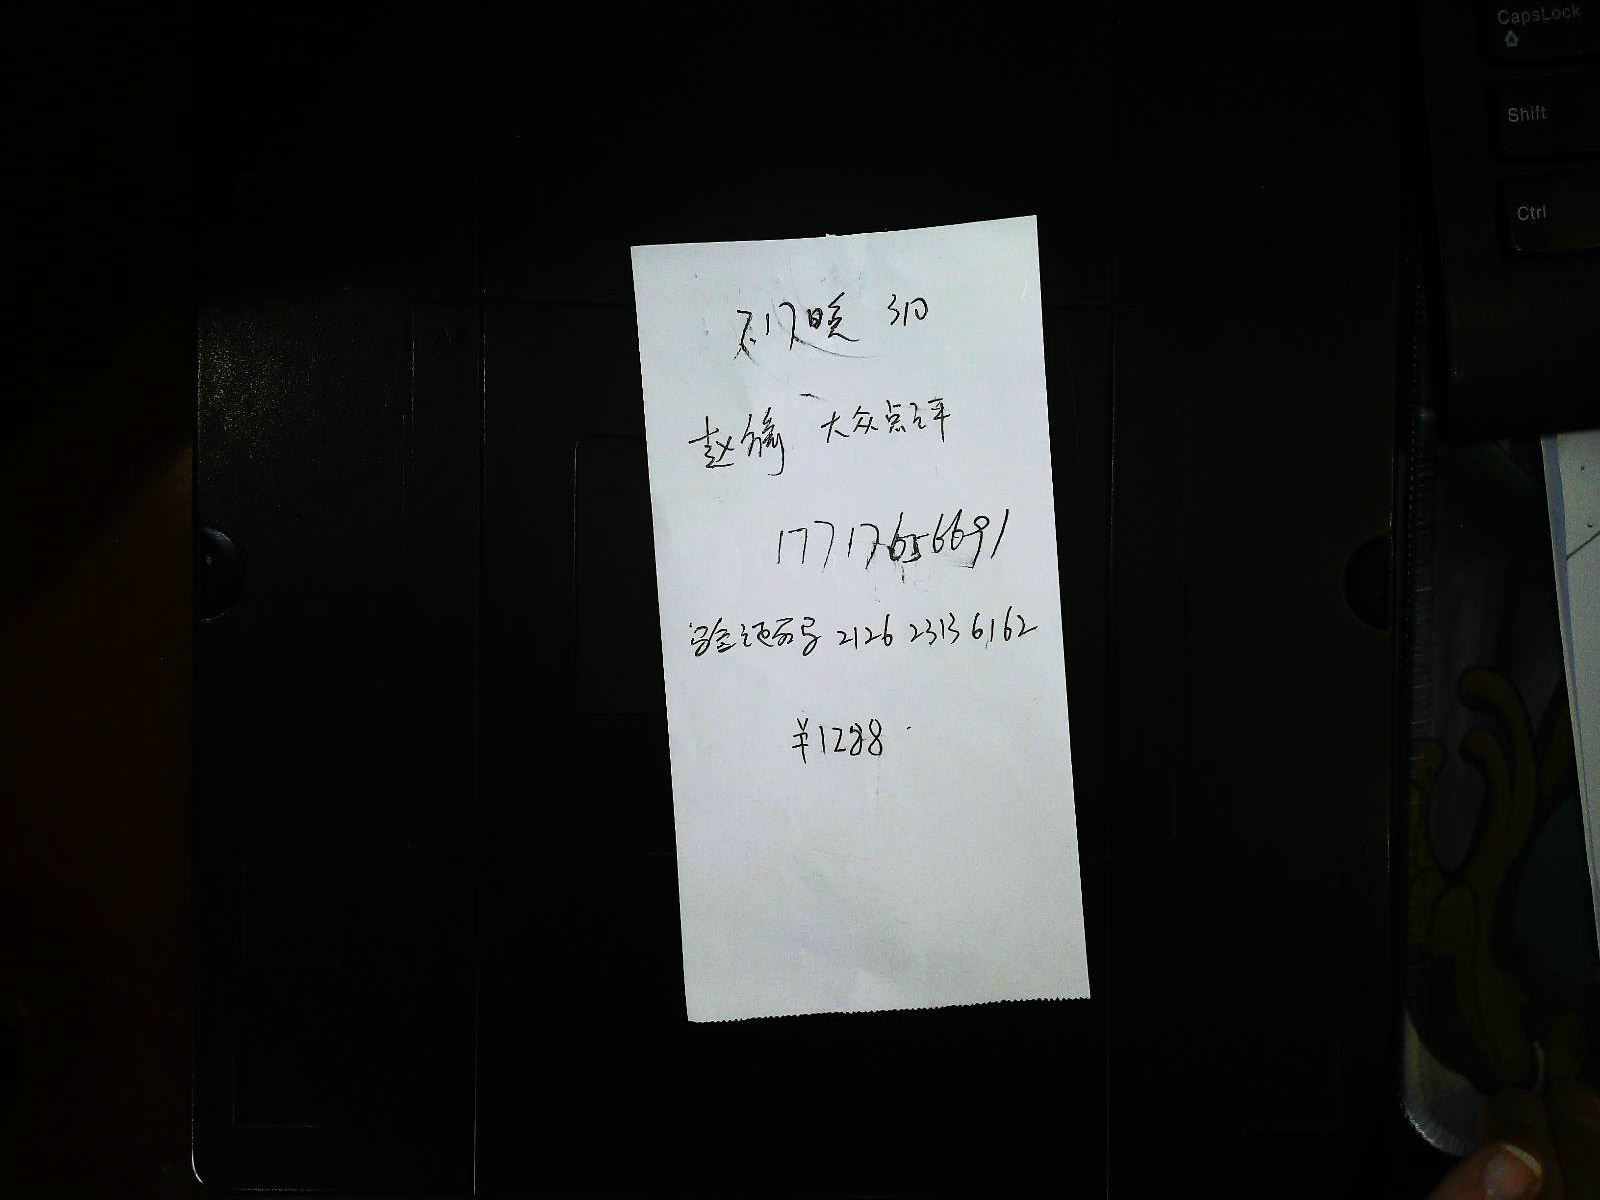 CapsLock
Shift
Ctrl
晓 310
赵 大众点评
17717656691
验证码号 2126 2313 6162
¥1288